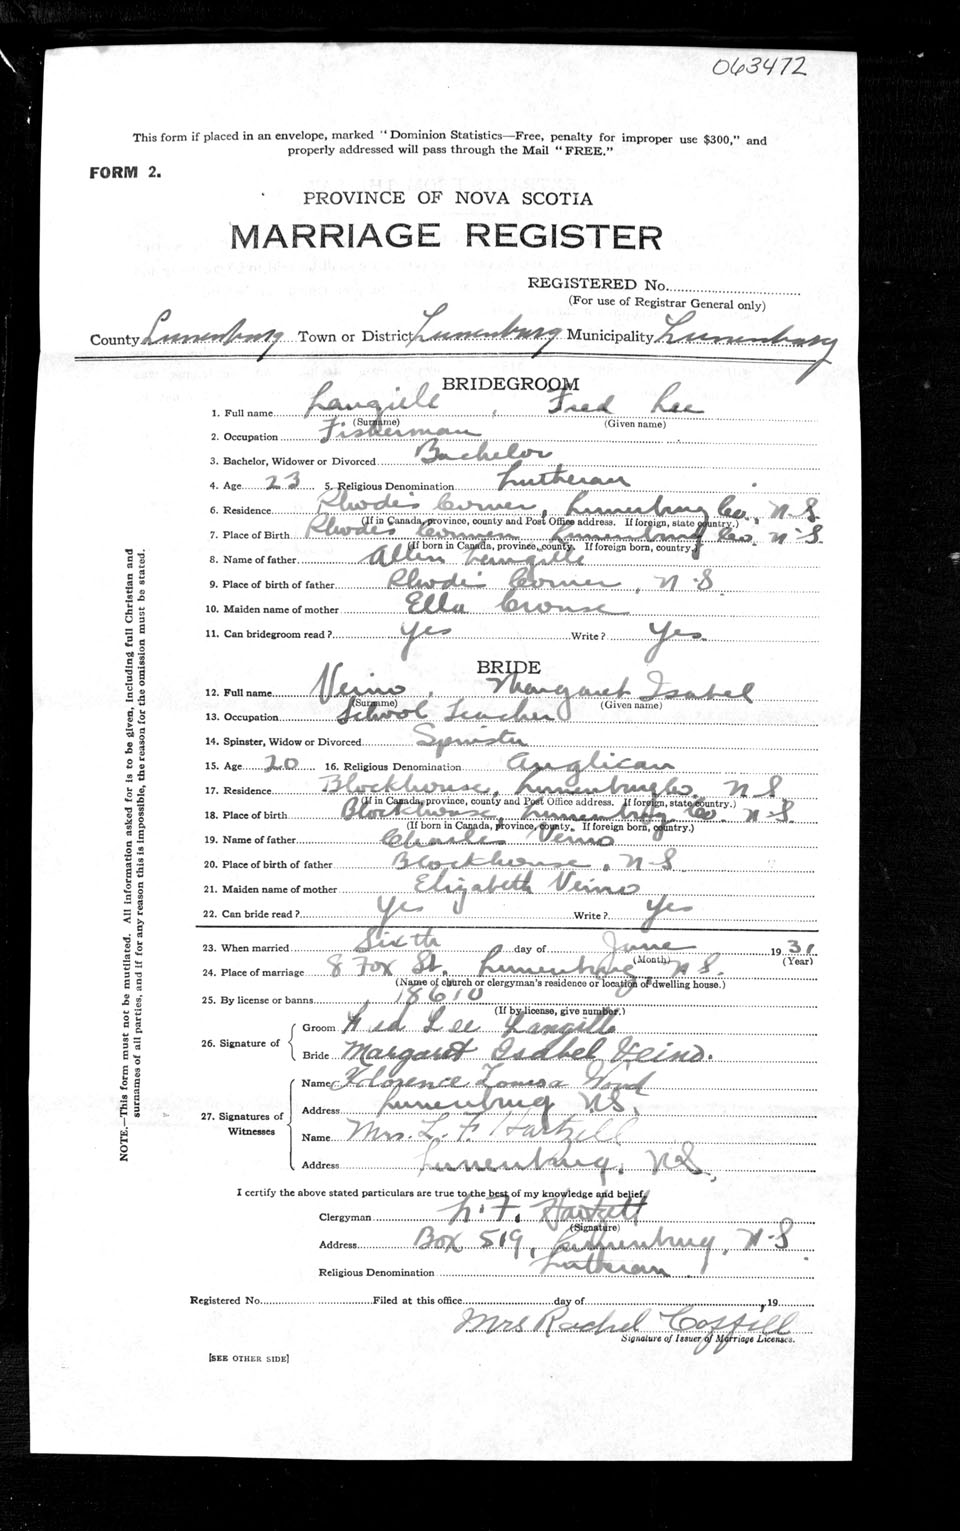 063472
This form if placed in an envelope, marked "Dominion Statistics—Free, penalty for improper use $300," and
properly addressed will pass through the Mail "FREE."
FORM 2.
PROVINCE OF NOVA SCOTIA
MARRIAGE REGISTER
REGISTERED No.
(For use of Registrar General only)
County Lunenburg Town or District Lunenburg Municipality Lunenburg
BRIDEGROOM
1. Full name Langille, Fred Lee
(Surname) (Given name)
2. Occupation Fisherman
3. Bachelor, Widower or Divorced Bachelor
4. Age 23 5. Religious Denomination Lutheran
6. Residence Rhodes Corner, Lunenburg Co., N.S.
(If in Canada, province, county and Post Office address. If foreign, state country.)
7. Place of Birth Rhodes Corner Lunenburg Co. N.S.
(If born in Canada, province, county. If foreign born, country.)
8. Name of father Allen Langille
9. Place of birth of father Rhodes Corner, N.S
10. Maiden name of mother Ella Crouse
11. Can bridegroom read? Yes Write? Yes.
BRIDE
12. Full name Veino, Margaret Isabel
(Surname) (Given name)
13. Occupation School Teacher
14. Spinster, Widow or Divorced Spinster
15. Age 20 16. Religious Denomination Anglican
17. Residence Blockhouse, Lunenburg Co. N.S
(If in Canada, province, county and Post Office address. If foreign, state country.)
18. Place of birth Blockhouse, Lunenburg Co. N.S.
(If born in Canada, province, county. If foreign born, country.)
19. Name of father Charles Veino
20. Place of birth of father Blockhouse, N.S
21. Maiden name of mother Elizabeth Veino
22. Can bride read? Yes Write? Yes
23. When married Sixth day of June 19 31
(Month) (Year)
24. Place of marriage 8 Fox St., Lunenburg N.S.
(Name of church or clergyman's residence or location of dwelling house.)
25. By license or banns 18610
(If by license, give number.)
26. Signature of
Groom Fred Lee Langille
Bride Margaret Isabel Veino.
27. Signatures of Witnesses
Name Florence Louisa
Address Lunenburg N.S.
Name Mrs. L. F. Hartzell
Address Lunenburg, N.S.
I certify the above stated particulars are true to the best of my knowledge and belief.
Clergyman L. F. Hartzell
(Signature)
Address Box 519, Lunenburg, N.S
Religious Denomination Lutheran
Registered No. Filed at this office day of , 19
Mrs Rachel
Signature of Issuer of Marriage Licenses.
[SEE OTHER SIDE]
NOTE.—This form must not be mutilated. All information asked for is to be given, including full Christian and
surnames of all parties, and if for any reason this is impossible, the reason for the omission must be stated.